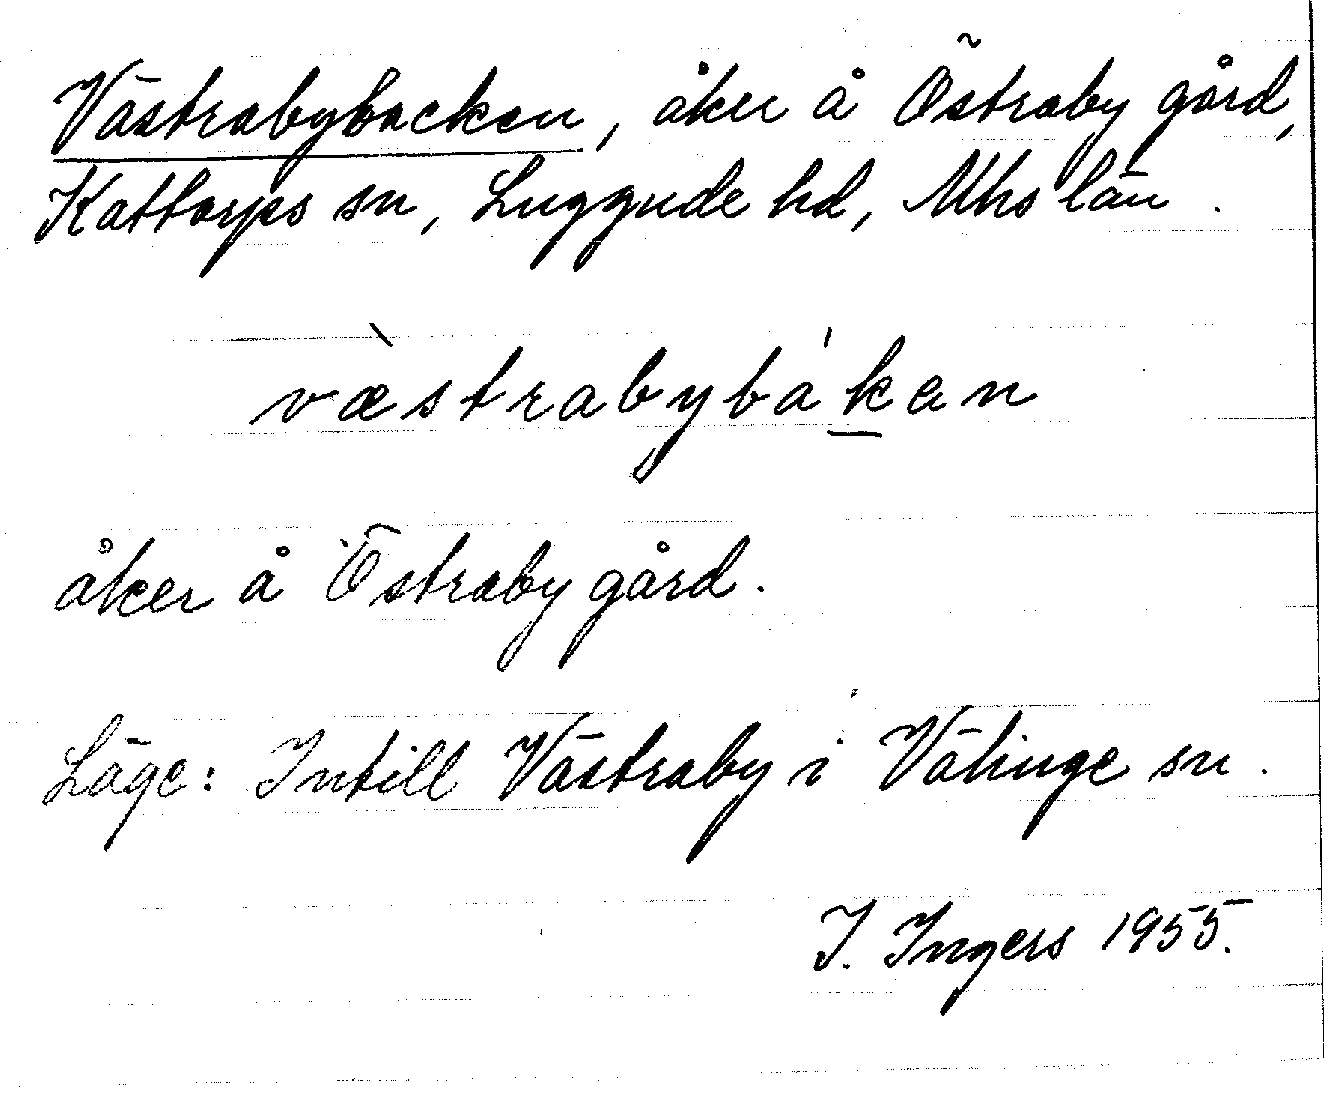 Västrabybacken, åker å Östraby gård,
Kattarps sn, Luggude hd, Mhs län.
væ̀strabybákan
åker å Östraby gård.
Läge: Intill Västraby i Välinge sn.
I. Ingers 1955.